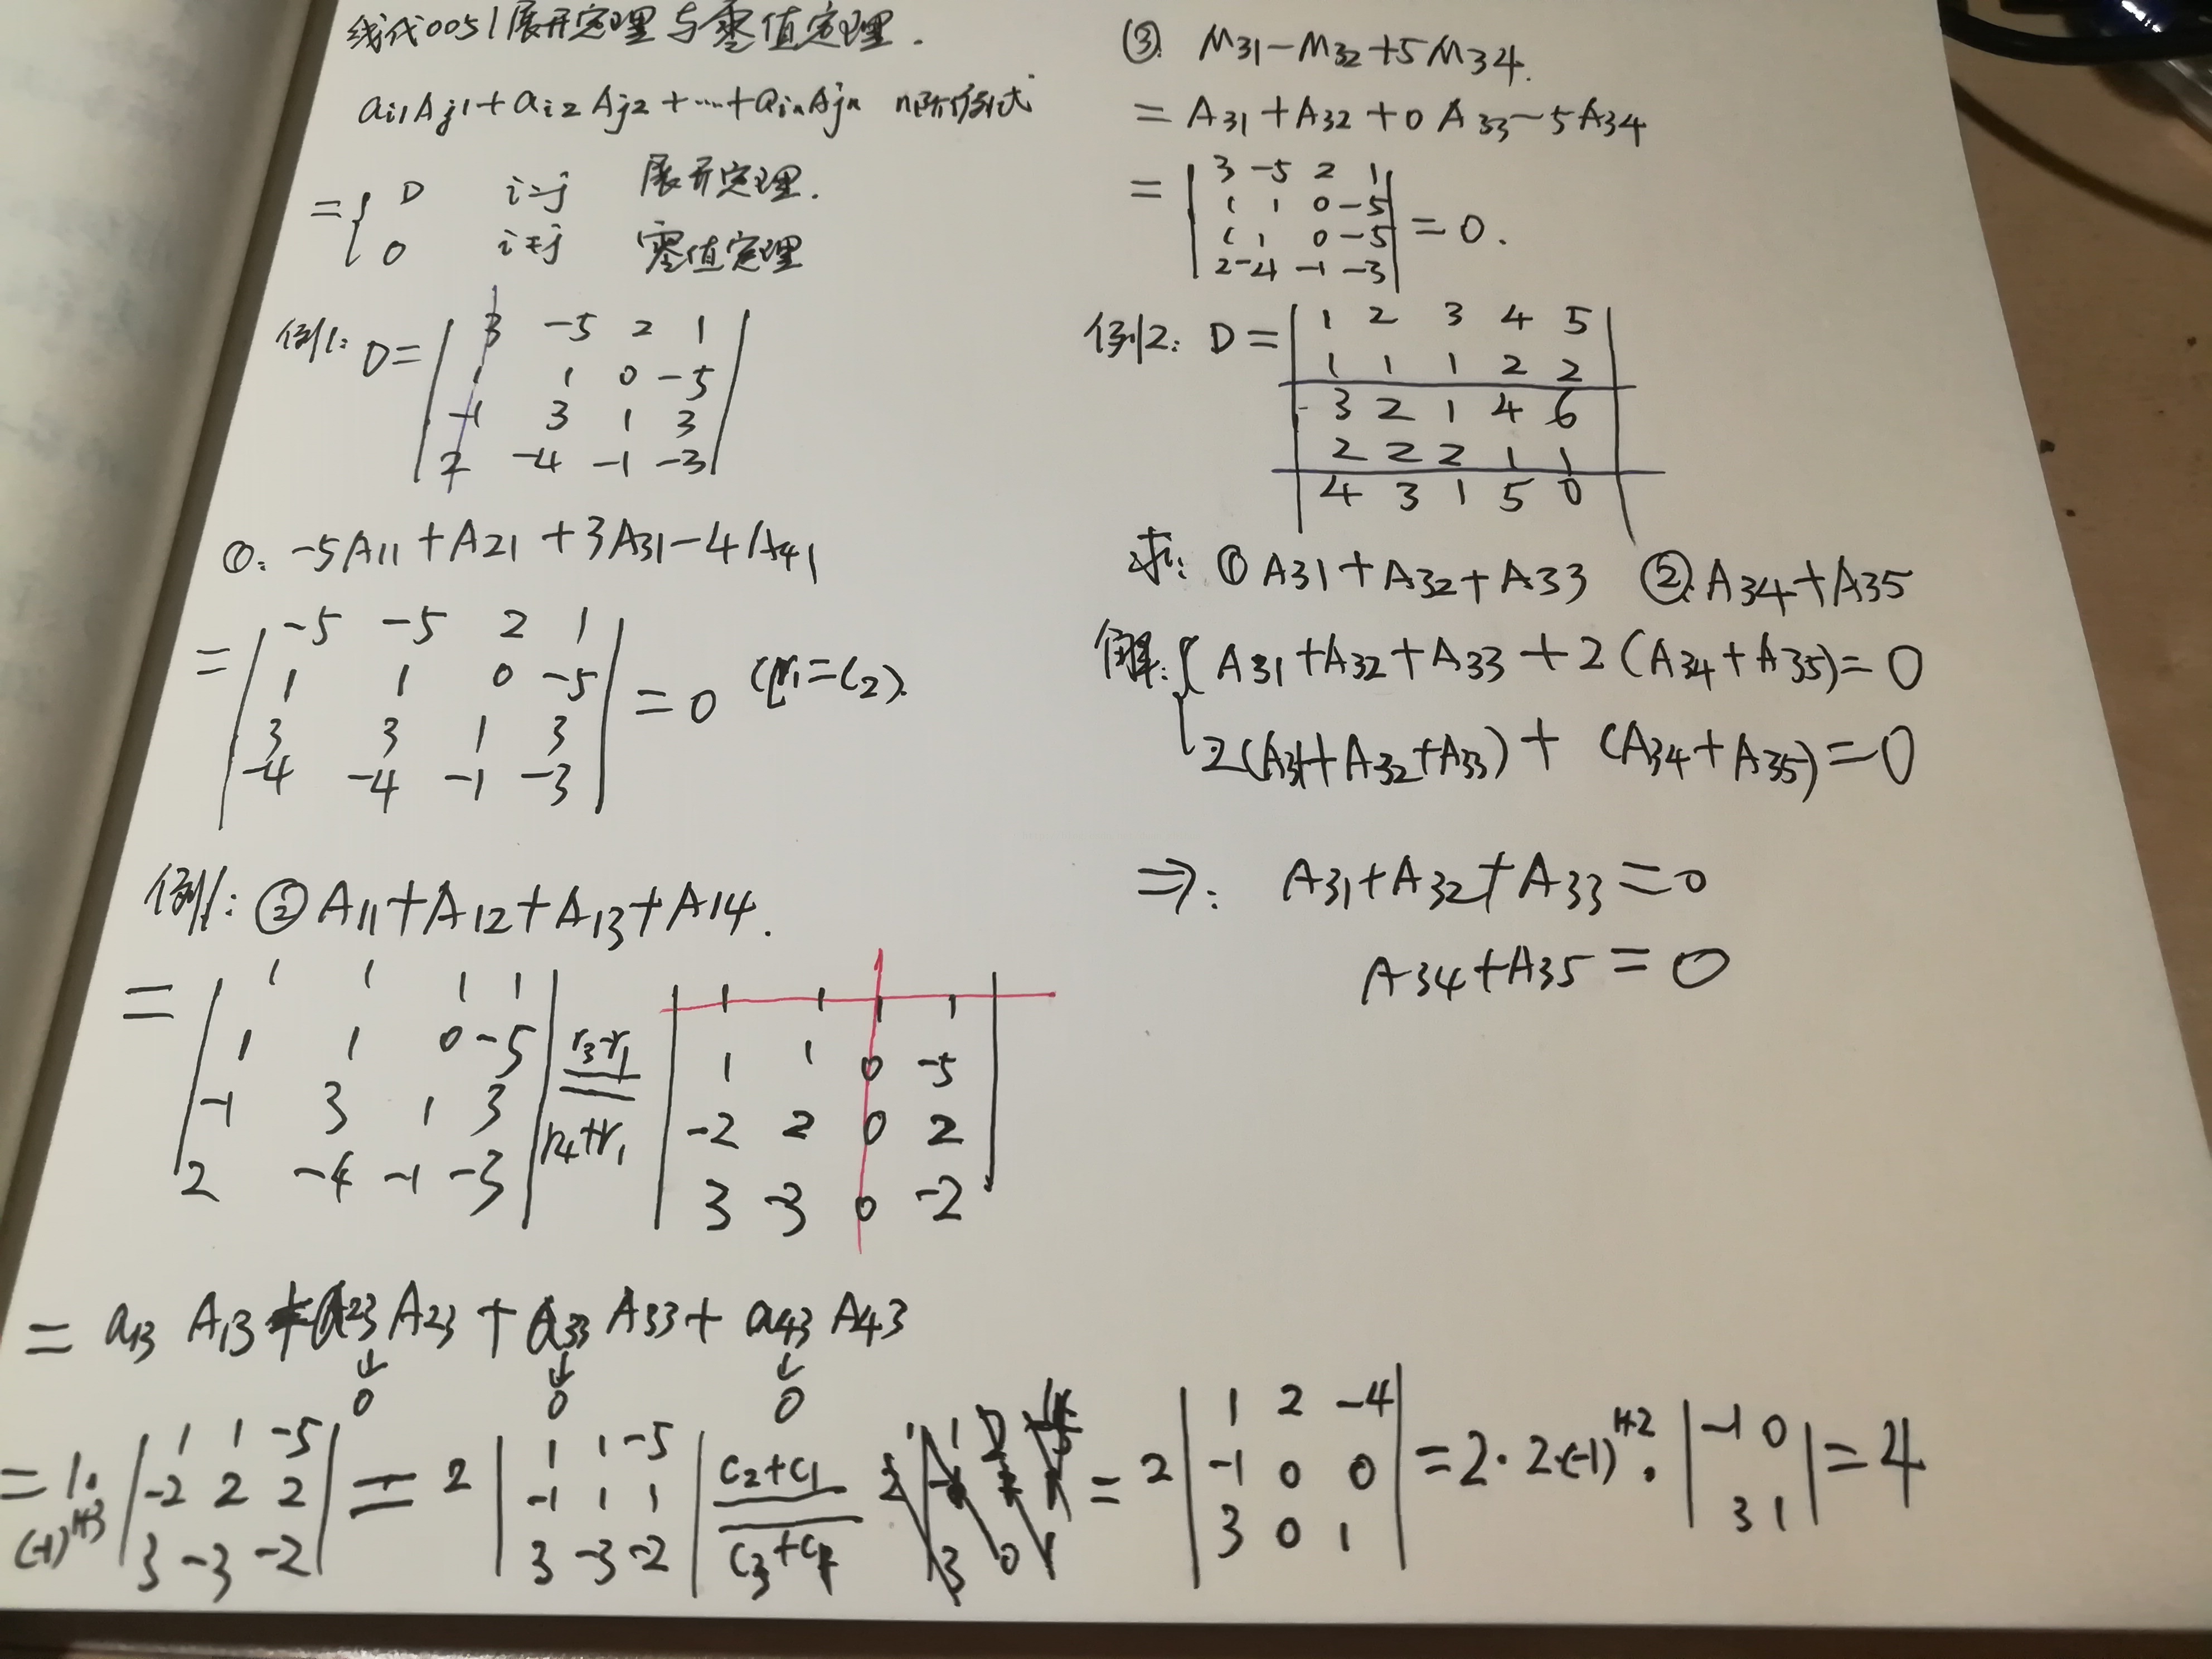 线代0051展开定理与零值定理.
ai1Aj1+ai2Aj2+…+ainAjn n阶行列式
={ D i=j 展开定理.
0 i≠j 零值定理
例1: D= | 3 -5 2 1 |
1 1 0 -5
-1 3 1 3
2 -4 -1 -3
①. -5A11+A21+3A31-4A41
= | -5 -5 2 1 |
1 1 0 -5 = 0 (c1=c2).
3 3 1 3
-4 -4 -1 -3
例1: ② A11+A12+A13+A14.
= | 1 1 1 1 | r3-r1 r4+r1 | 1 1 1 1 |
1 1 0 -5 1 1 0 -5
-1 3 1 3 -2 2 0 2
2 -4 -1 -3 3 -3 0 -2
= a13 A13+a23 A23+a33 A33+a43 A43
↓ ↓ ↓
0 0 0
= 1·(-1)^1+3 | 1 1 -5 | = 2 | 1 1 -5 | c2+c1 c3+c1 = 2 | 1 2 -4 | = 2·2·(-1)^1+2 · | -1 0 | = 4
-2 2 2 -1 1 1 -1 0 0 3 1
3 -3 -2 3 -3 -2 3 0 1
③. M31-M32+5M34.
= A31+A32+0A33-5A34
= | 3 -5 2 1 |
1 1 0 -5
1 1 0 -5 = 0.
2 -4 -1 -3
例2: D= | 1 2 3 4 5 |
1 1 1 2 2
3 2 1 4 6
2 2 2 1 1
4 3 1 5 0
求: ① A31+A32+A33 ② A34+A35
解: { A31+A32+A33+2(A34+A35)=0
2(A31+A32+A33)+(A34+A35)=0
⇒: A31+A32+A33=0
A34+A35=0